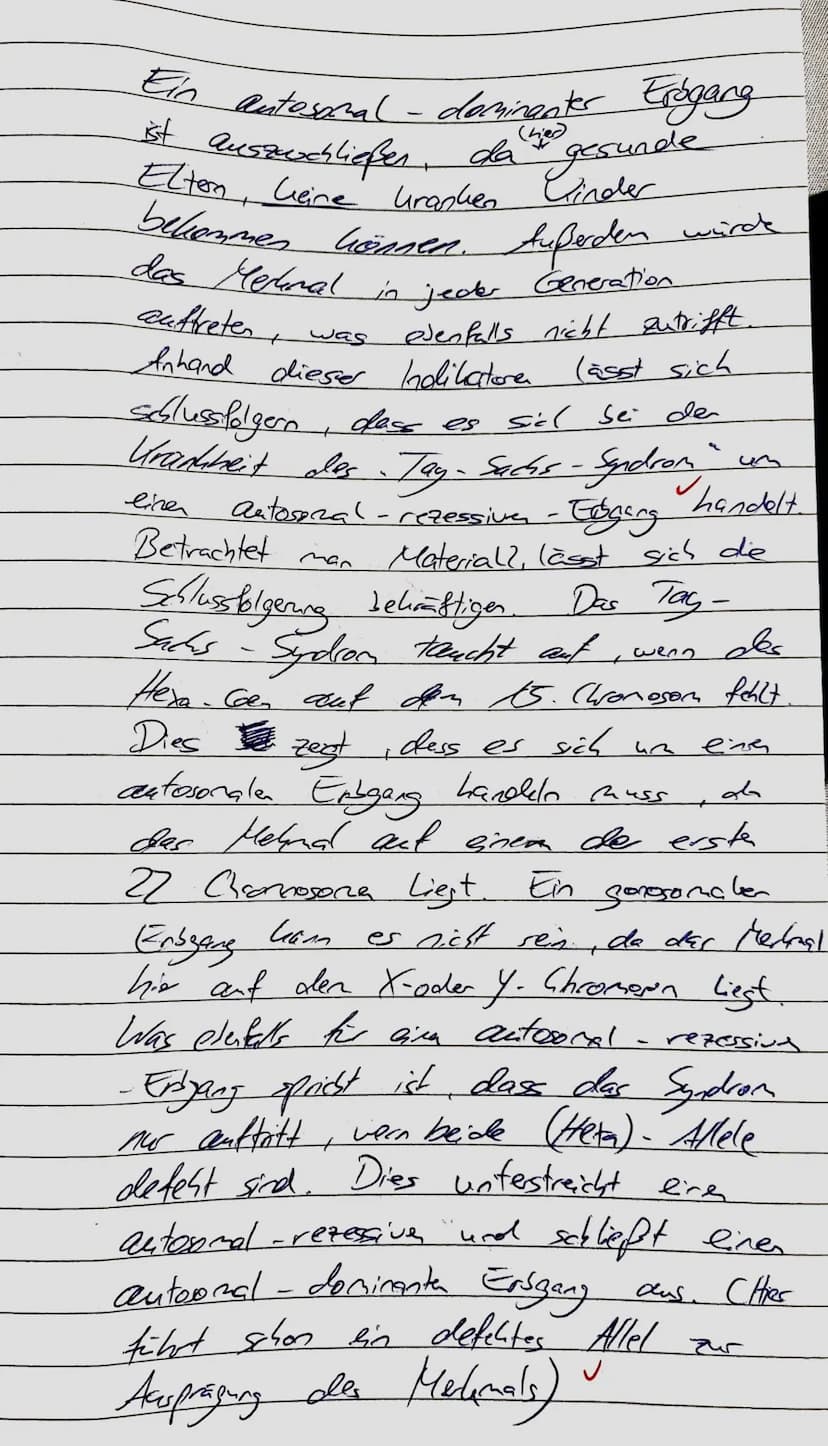 Ein autosomal - dominanter Erbgang
ist auszuschließen, da (hier) gesunde
Eltern, keine kranken Kinder
bekommen können. Außerdem würde
das Merkmal in jeder Generation
auftreten, was ebenfalls nicht zutrifft.
Anhand dieser Indikatoren lässt sich
schlussfolgern, dass es sich bei der
Krankheit des „Tay - Sachs - Syndrom" um
einen autosomal - rezessiven - Erbgang handelt.
Betrachtet man Material 2, lässt sich die
Schlussfolgerung bekräftigen. Das Tay -
Sachs - Sydrom taucht auf, wenn das
Hexa - Gen auf dem 15. Chromosom fehlt.
Dies zeigt, dass es sich um einen
autosomalen Erbgang handeln muss, da
das Merkmal auf einem der ersten
22 Chromosome liegt. Ein gonosomaler
Erbgang kann es nicht sein, da das Merkmal
hier auf dem X- oder Y- Chromosom liegt.
Was ebenfalls für einen autosomal - rezessiven
- Erbgang spricht ist, dass das Syndrom
nur auftritt, wenn beide (Hexa) - Allele
defekt sind. Dies unterstreicht einen
autosomal - rezessiven und schließt einen
autosomal - dominanten Erbgang aus. (Hier
führt schon ein defektes Allel zur
Ausprägung des Merkmals)